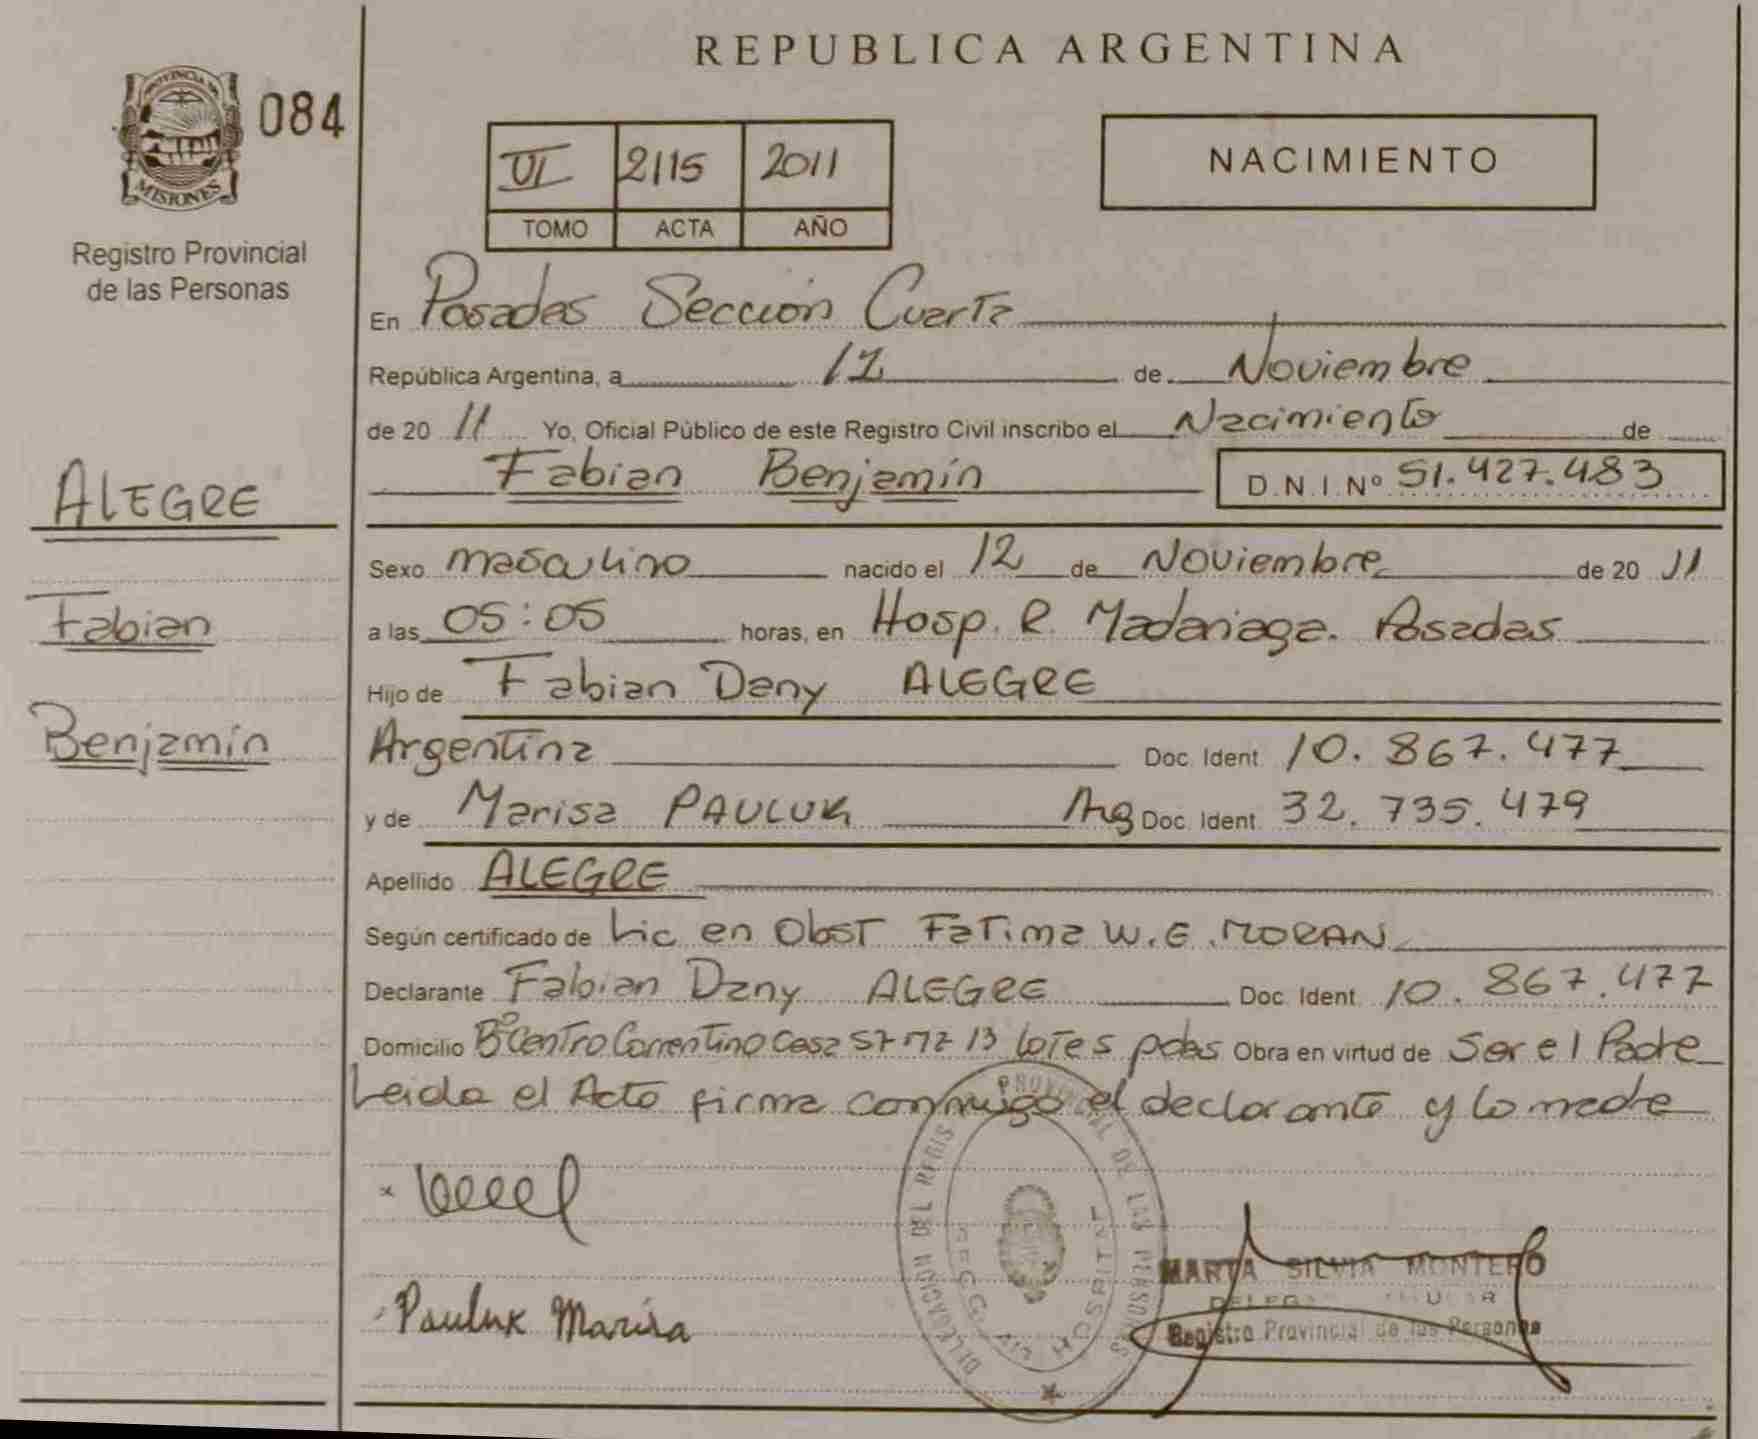 REPUBLICA ARGENTINA
PROVINCIA DE
MISIONES
084
Registro Provincial
de las Personas
VI 2115 2011
TOMO ACTA AÑO
NACIMIENTO
En Posadas Sección Cuarta
República Argentina, a 12 de Noviembre
de 20 11 Yo, Oficial Público de este Registro Civil inscribo el Nacimiento de
Fabian Benjamín D.N.I. Nº 51.427.483
ALEGRE
Fabian
Benjamín
Sexo masculino nacido el 12 de Noviembre de 20 11
a las 05:05 horas, en Hosp. R. Madariaga. Posadas
Hijo de Fabian Dany ALEGRE
Argentina Doc. Ident. 10.867.477
y de Marisa PAULUK Arg Doc. Ident. 32.735.479
Apellido ALEGRE
Según certificado de Lic en Obst Fatima W.E. MORAN
Declarante Fabian Dany ALEGRE Doc. Ident. 10.867.477
Domicilio Bº Centro Correntino Casa 57 Mz 13 Lote 5 pdas Obra en virtud de Ser el Padre
Leida el Acta firma conmigo el declarante y la madre
Pauluk Marisa
DELEGACION DEL REGISTRO PROVINCIAL DE LAS PERSONAS
HOSPITAL
MARTA SILVIA MONTERO
Registro Provincial de las Personas